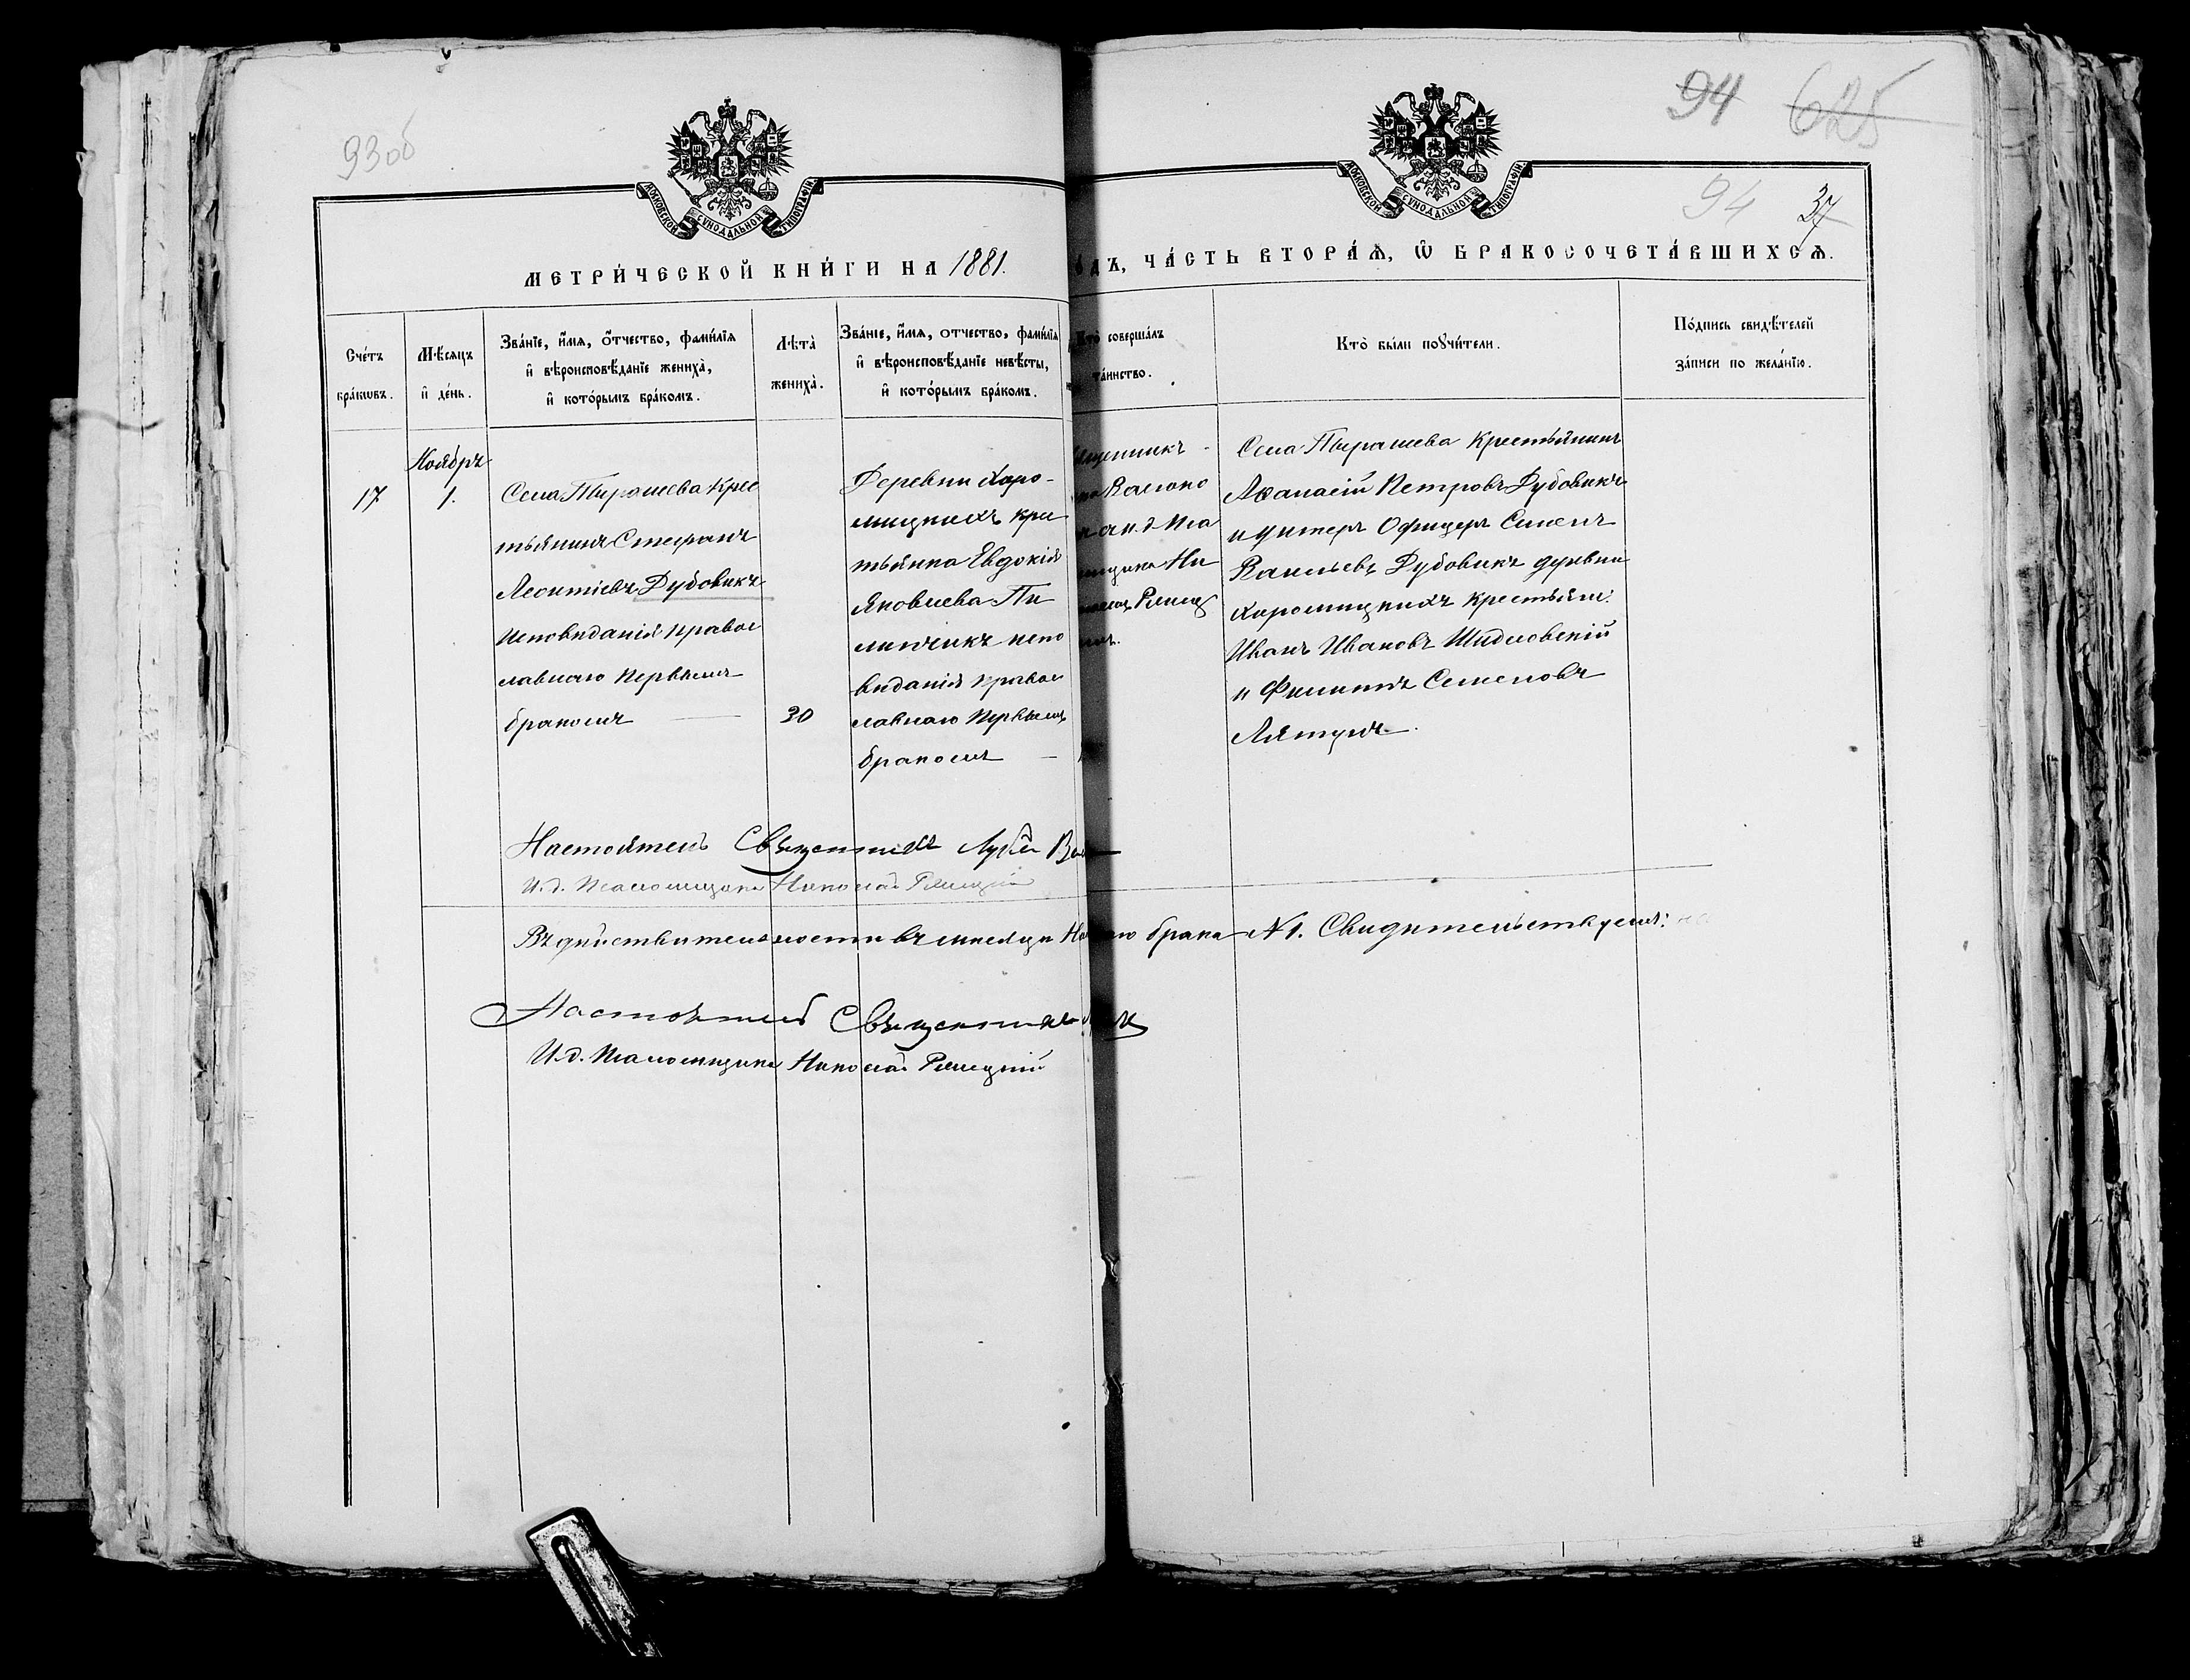 93об
94 625
94 37
МОСКОВСКОЙ СѴНОДАЛЬНОЙ ТИПОГРАФІИ
МОСКОВСКОЙ СѴНОДАЛЬНОЙ ТИПОГРАФІИ
МЕТРИ́ЧЕСКОЙ КНИ́ГИ НА 1881.
О́ДЪ, ЧА́СТЬ ВТОРА́Ѧ, Ѡ҆ БРАКОСОЧЕТА́ВШИХСѦ.
Сче́тъ
бра́кѡвъ.
Мѣ́сяцъ
и҆ де́нь.
Зва́нїе, и҆́мя, ѻ҆́тчество, фами́лїя
и҆ вѣроисповѣ́данїе жениха̀,
и҆ кото́рымъ бра́комъ.
Лѣта̀
жениха̀.
Зва́нїе, и҆́мя, ѻ҆тчество, фами́лїя
и҆ вѣроисповѣ́данїе невѣ́сты,
и҆ кото́рымъ бра́комъ.
Кто̀ соверша́лъ
та́инство.
Кто̀ бы́ли поꙋчи́тели.
По́дпись свидѣ́телей
за́писи по жела́нїю.
Ноябрь
17
1.
Села Тырашева Крес
тьянинъ Стефанъ
Леонтіевъ Дубовикъ
исповѣданія правос
лавнаго первымъ
бракомъ
30
Деревни Харо-
мицкихъ крес
тьянка Евдокія
Яковлева Пи
липчикъ испо
вѣданія правос
лавнаго первымъ
бракомъ
щенникъ
и. д. Пса
ломщика Ни
Села Тырашева Крестьянинъ
Аѳанасій Петровъ Дубовикъ
и унтеръ Офицеръ Семенъ
Васильевъ Дубовикъ деревни
Харомицкихъ Крестьяне:
Иванъ Ивановъ Шидловскій
и Филиппъ Семеновъ
Лятунъ.
Настоятель Священникъ Лука
И. д. Псаломщика Николай
Въ дѣйствительности въ мѣсяцѣ Но го брака № 1. Свидѣтельствуемъ:
Настоятель Священникъ
И. д. Псаломщика Николай